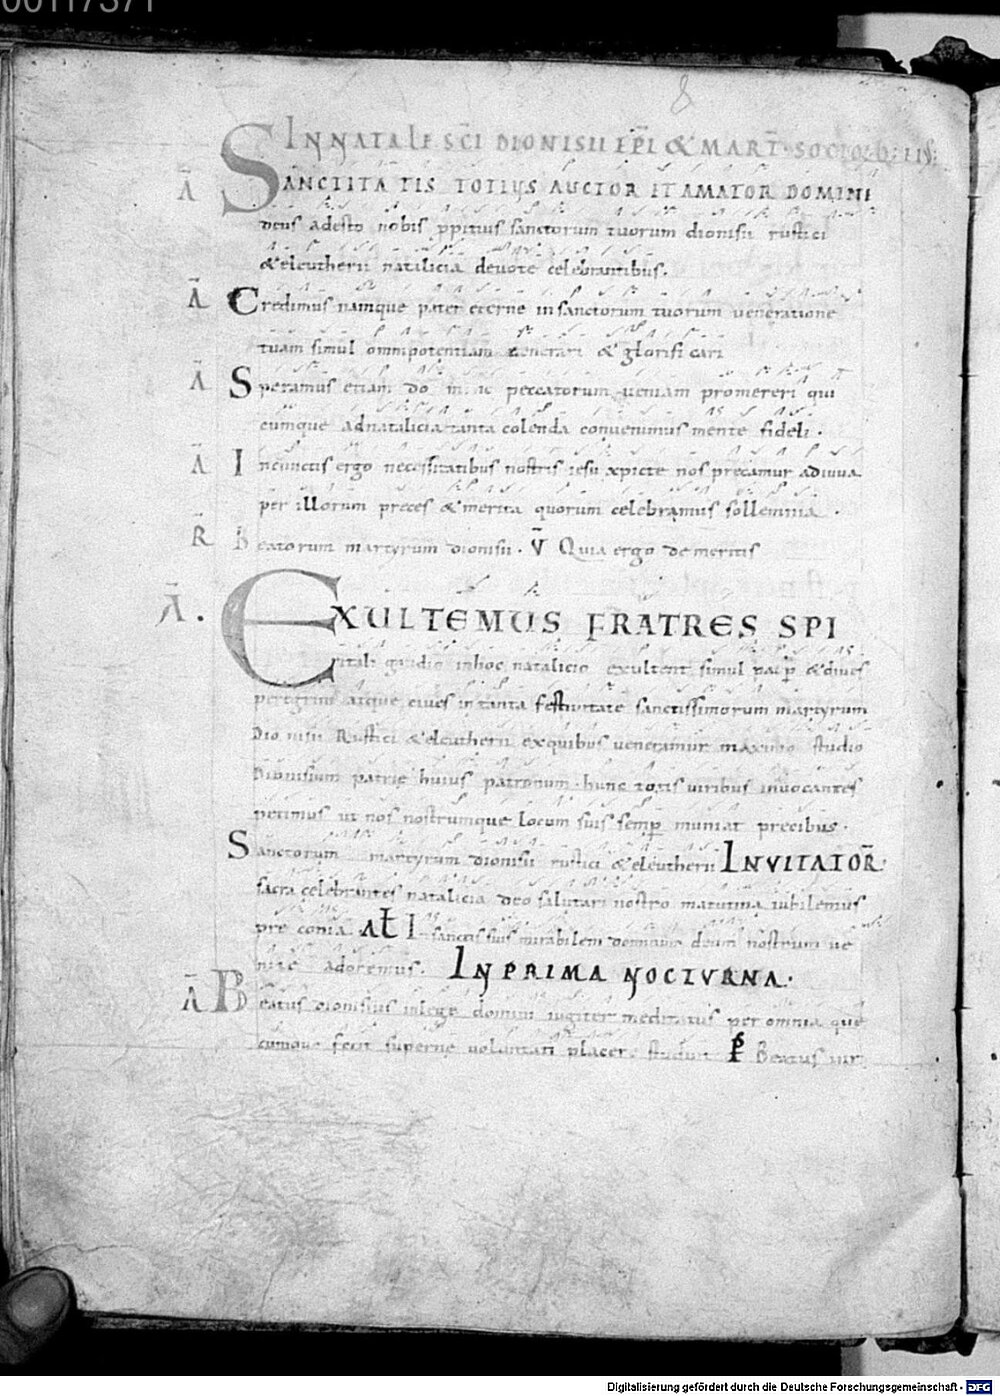 00117371
8
IN NATALE SC̄I DIONISII EP̄I & MART̄
Ā SANCTITATIS TOTIUS AUCTOR ET AMATOR DOMINE
deus adesto nobis ppitius sanctorum tuorum dionisii rustici
& eleutherii natilicia devote celebrantibus.
Ā Credimus namque pater eterne in sanctorum tuorum veneratione
tuam simul omnipotentiam venerari & glorificari
Ā Speramus etiam peccatorum veniam promereri qui
cumque ad natalicia tanta colenda convenimus mente fideli.
Ā In cunctis ergo necessitatibus nostris iesu xpicte nos precamur adiuva
per illorum preces & merita quorum celebramus sollemnia.
R̄ Beatorum martyrum dionisii. V̄ Quia ergo de meritis
Ā. EXULTEMUS FRATRES SPI
ritali gaudio in hoc natalicio exultent simul paup̄ & dives
peregrini atque cives in tanta festivitate sanctissimorum martyrum
Dionisii Rustici & eleutherii ex quibus veneramur maximo studio
Dionisium patrie huius patronum. hunc totis viribus invocantes
petimus ut nos nostrumque locum suis semp̄ muniat precibus.
Sanctorum martyrum dionisii rustici & eleutherii INVITATOR̄
sacra celebrantes natalicia deo salutari nostro matutina iubilemus
preconia AŁ In sanctis suis mirabilem dominum deum nostrum ve
nite adoremus. IN PRIMA NOCTVRNA.
Ā Beatus dionisius in lege domini iugiter meditatus per omnia que
cumque fecit superne voluntati placere studuit P̄ Beatus vir
Digitalisierung gefördert durch die Deutsche Forschungsgemeinschaft - DFG